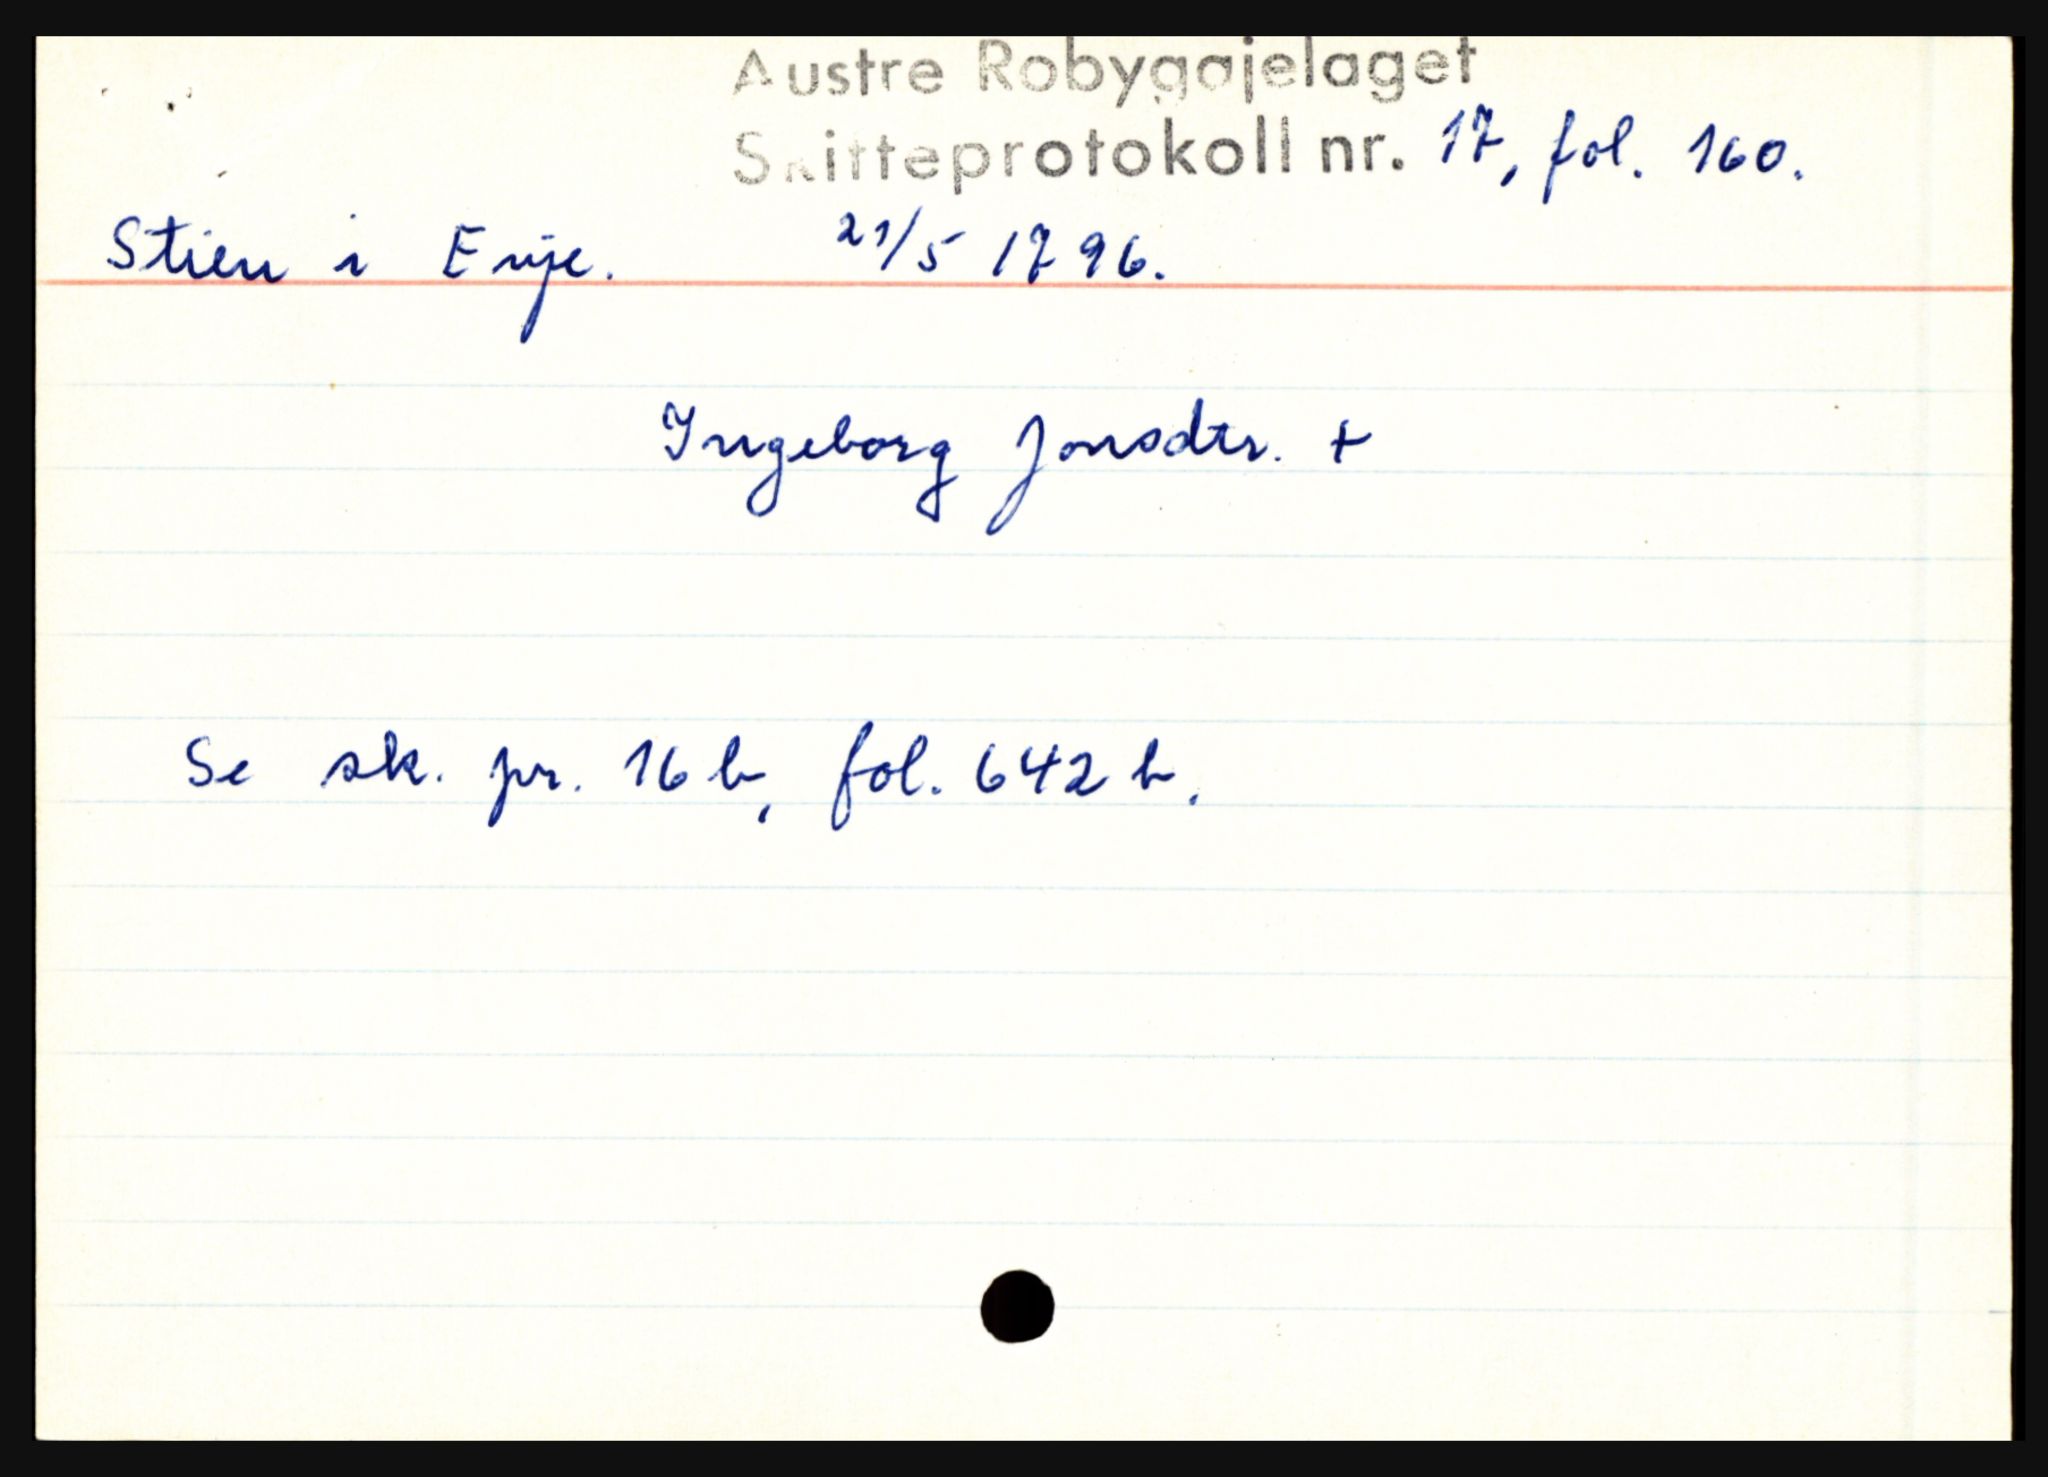 Austre Robygdjelaget
Skifteprotokoll nr. 17, fol. 160.
Stien i Evje. 21/5 1796.
Ingeborg Jonsdtr. +
Se sk. pr. 16 b, fol. 642 b.